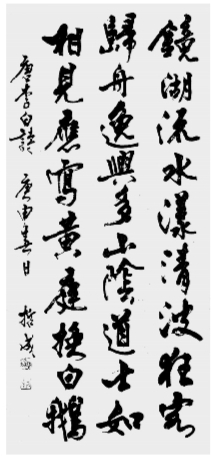 鏡湖流水漾清波狂客
歸舟逸興多山陰道士如
相見應寫黃庭換白鵝
唐李白詩 庚申春日